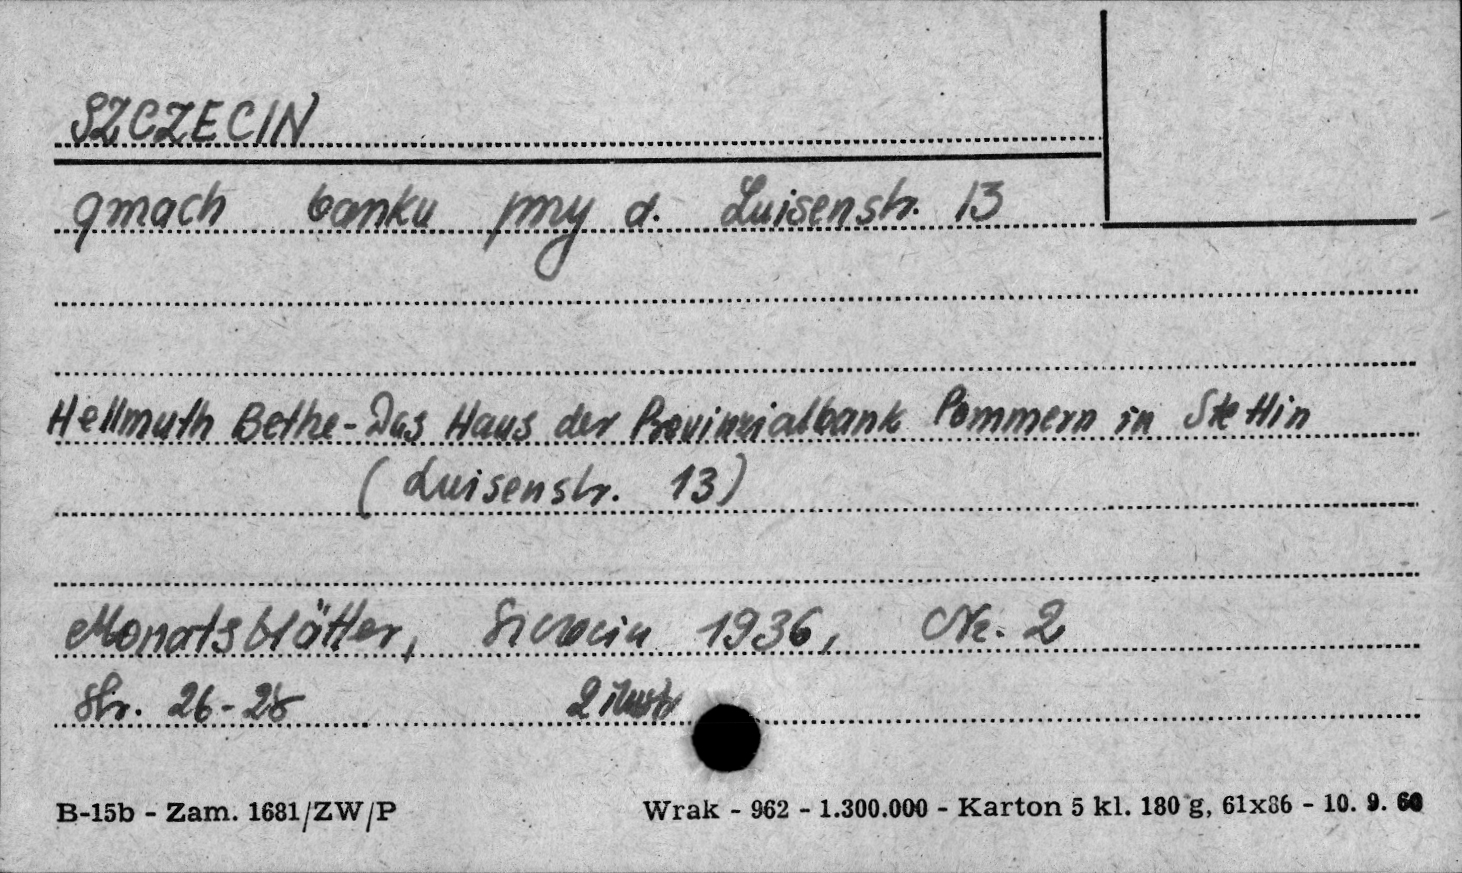 SZCZECIN
gmach banku przy d. Luisenstr. 13
Hellmuth Bethe - Das Haus der Provinzialbank Pommern in Stettin
(Luisenstr. 13)
Monatsblätter, Szczecin 1936, Nr. 2
Str. 26-28 2 ilustr
B-15b - Zam. 1681/ZW/P Wrak - 962 - 1.300.000 - Karton 5 kl. 180 g, 61x86 - 10. 9. 60